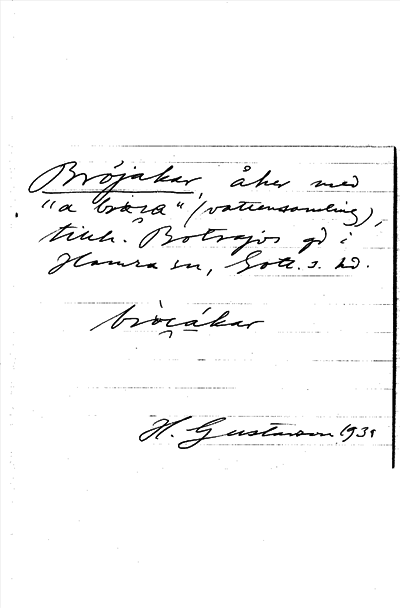 Bröjakar, åker med
"a bröia" (vattensamling),
tillh. Botvajds gd i
Hamra sn, Gotl. s. hd.
bröi̯ákar
H. Gustavson 193